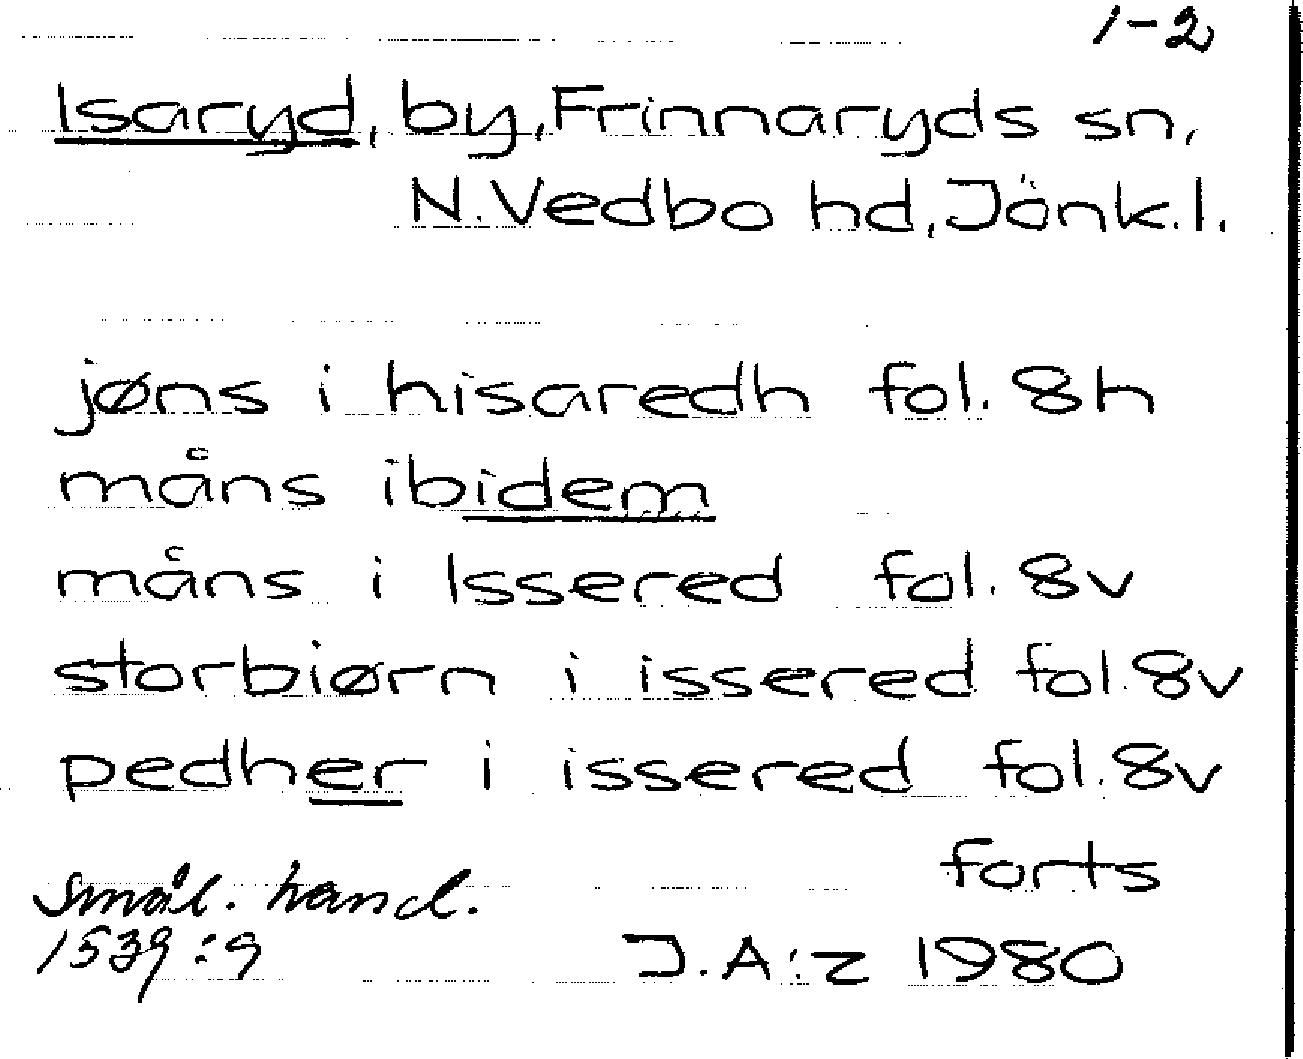 1-2
Isaryd, by, Frinnaryds sn,
N. Vedbo hd, Jönk. l.
jøns i hisaredh fol. 8h
måns ibidem
måns i Issered fol. 8v
storbiørn i issered fol. 8v
pedher i issered fol. 8v
forts
Smål. hand.
1539:9
J.A:z 1980